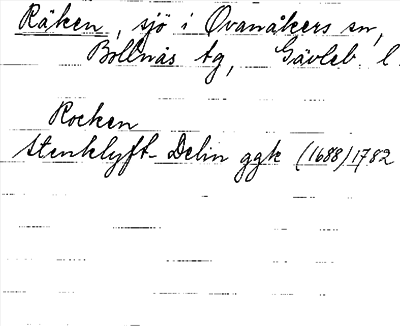 Räken, sjö i Ovanåkers sn,
Bollnäs tg, Gävleb. l.
Rocken
Stenklyft- Delin ggk (1688) 1782